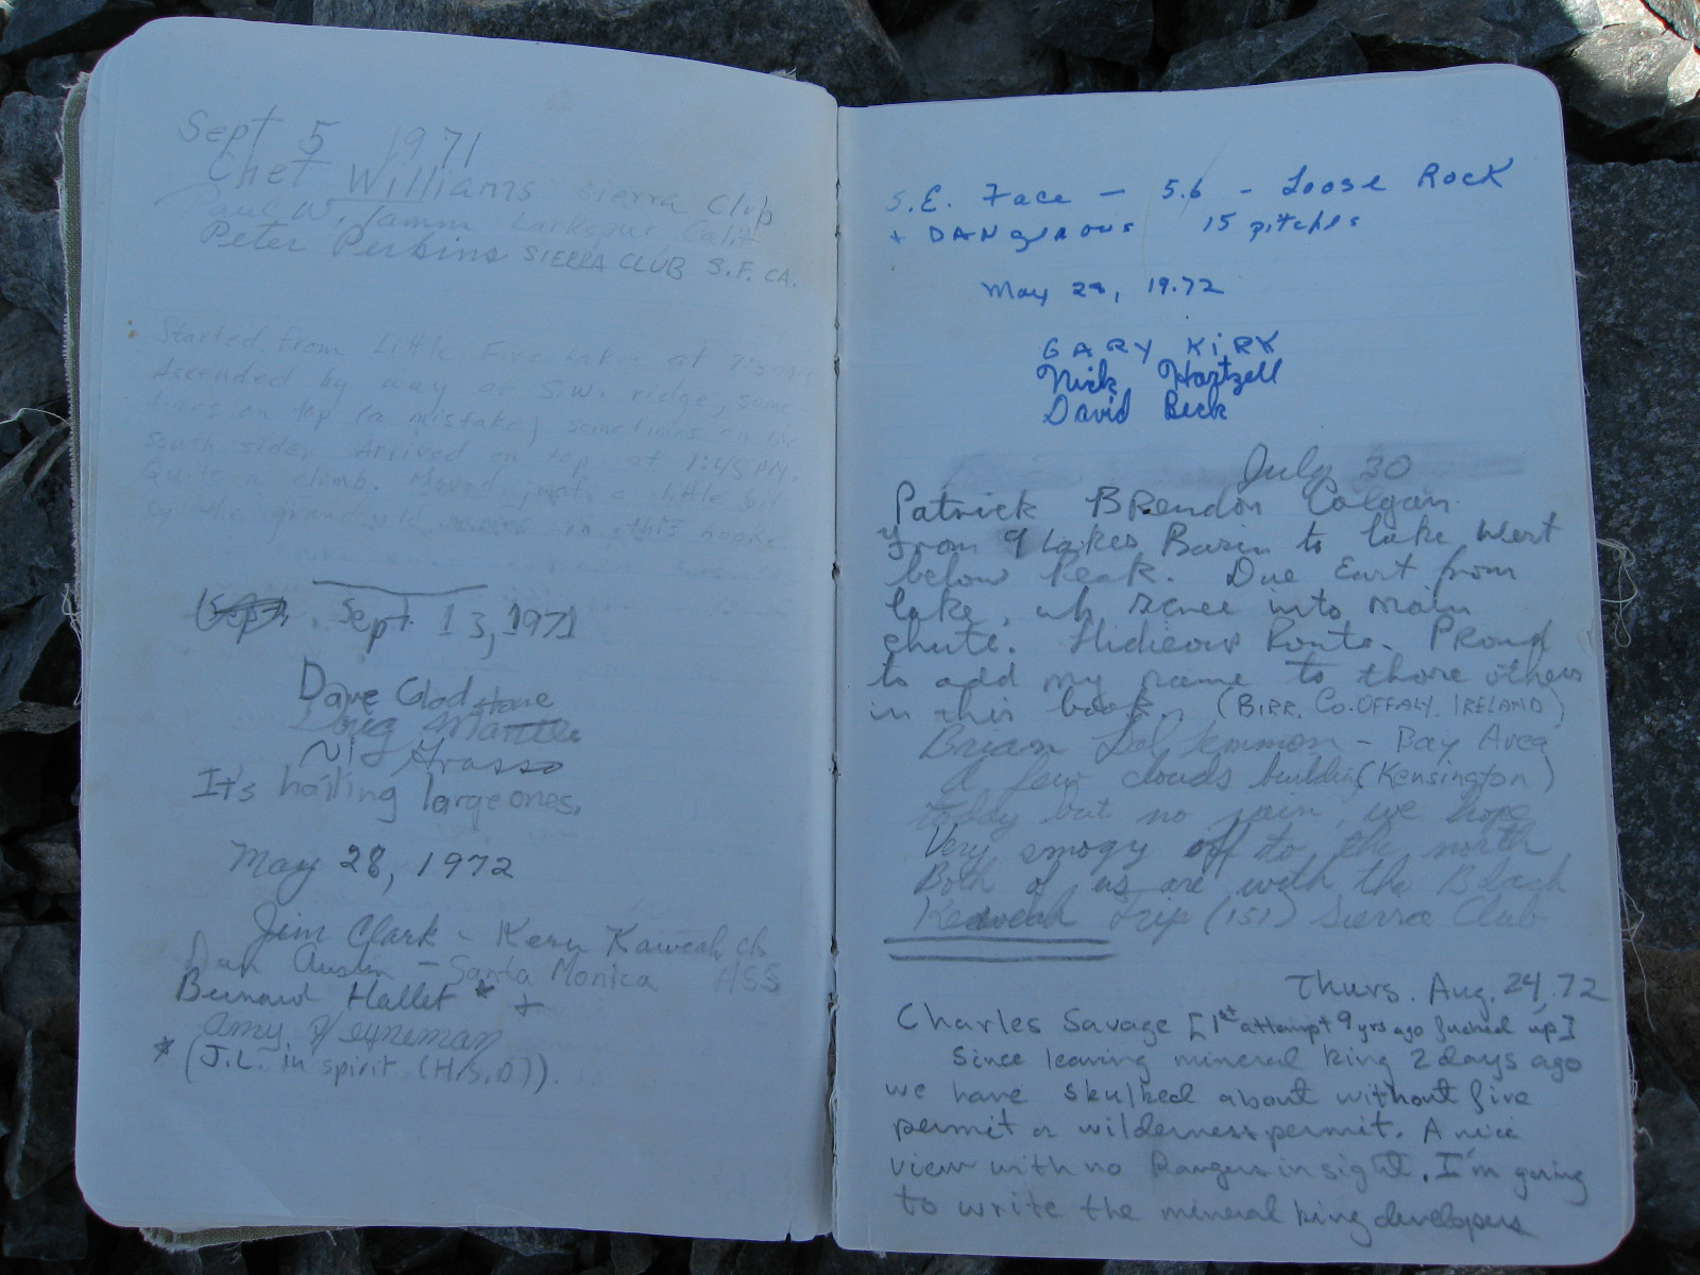 Sept 5 1971
Chet Williams Sierra Club
Paul W. Tamm Larkspur Calif
Peter Perkins SIERRA CLUB S.F. CA.
Started from Little Five Lakes at 7:30
Ascended by way of S.W. ridge, some
times on top (a mistake) sometimes on the
south side. Arrived on top at 1:45 PM.
Quite a climb. Moved just a little bit
by the grand old names in this
Sept. 13, 1971
Dave Gladstone
Doug Mantle
Grasso
It's hailing large ones.
May 28, 1972
Jim Clark - Kern Kaweah ch
Dan Austin - Santa Monica HSS
Bernard Hallet * +
Amy Heyneman
* (J.L. in spirit (H.S.O)).
S.E. Face - 5.6 - Loose Rock
+ DANgerous 15 pitches
May 28, 19.72
GARY KIRK
Nick Hartzell
David Beck
July 30
Patrick BRendon Colgan
From 9 Lakes Basin to lake West
below Peak. Due East from
lake, into main
chute. Hidieous Route. PRoud
to add my name to those others
in this book. (BIRR. Co. OFFALY. IRELAND)
Brian - Bay Area
A few clouds buildin (Kensington)
today but no rain, we hope
Very smogy off to the north
Both of us are with the Black
Kaweah Trip (151) Sierra Club
Thurs. Aug. 24, 72
Charles Savage [1st attempt 9 yrs ago fucked up]
Since leaving mineral king 2 days ago
we have skulked about without fire
permit or wilderness permit. A nice
view with no Rangers in sight. I'm going
to write the mineral king developers